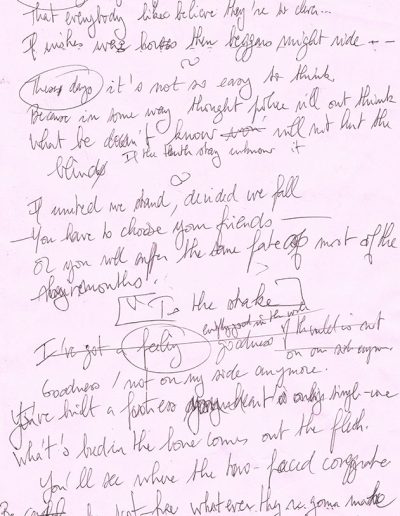 That everybody likes believe they're so clever...
If wishes was horses then beggars might ride - -
These days it's not so easy to think
Because in some way thought police will out think
What he doesn't know will not hurt the
blinds If the truth stay unknow it
If united we stand, decided we fall
You have to choose your friends
Or you will suffer the same fate of most of the
the stake
everything good in the world
I've got a feeling goodness of the world is not
on our side anymore.
Goodness / not on my side anymore.
You've built a fortress your heart is only single-one
What's bred in the bone comes out the flesh.
You'll see where the two-faced congregate
whatever they're gonna make